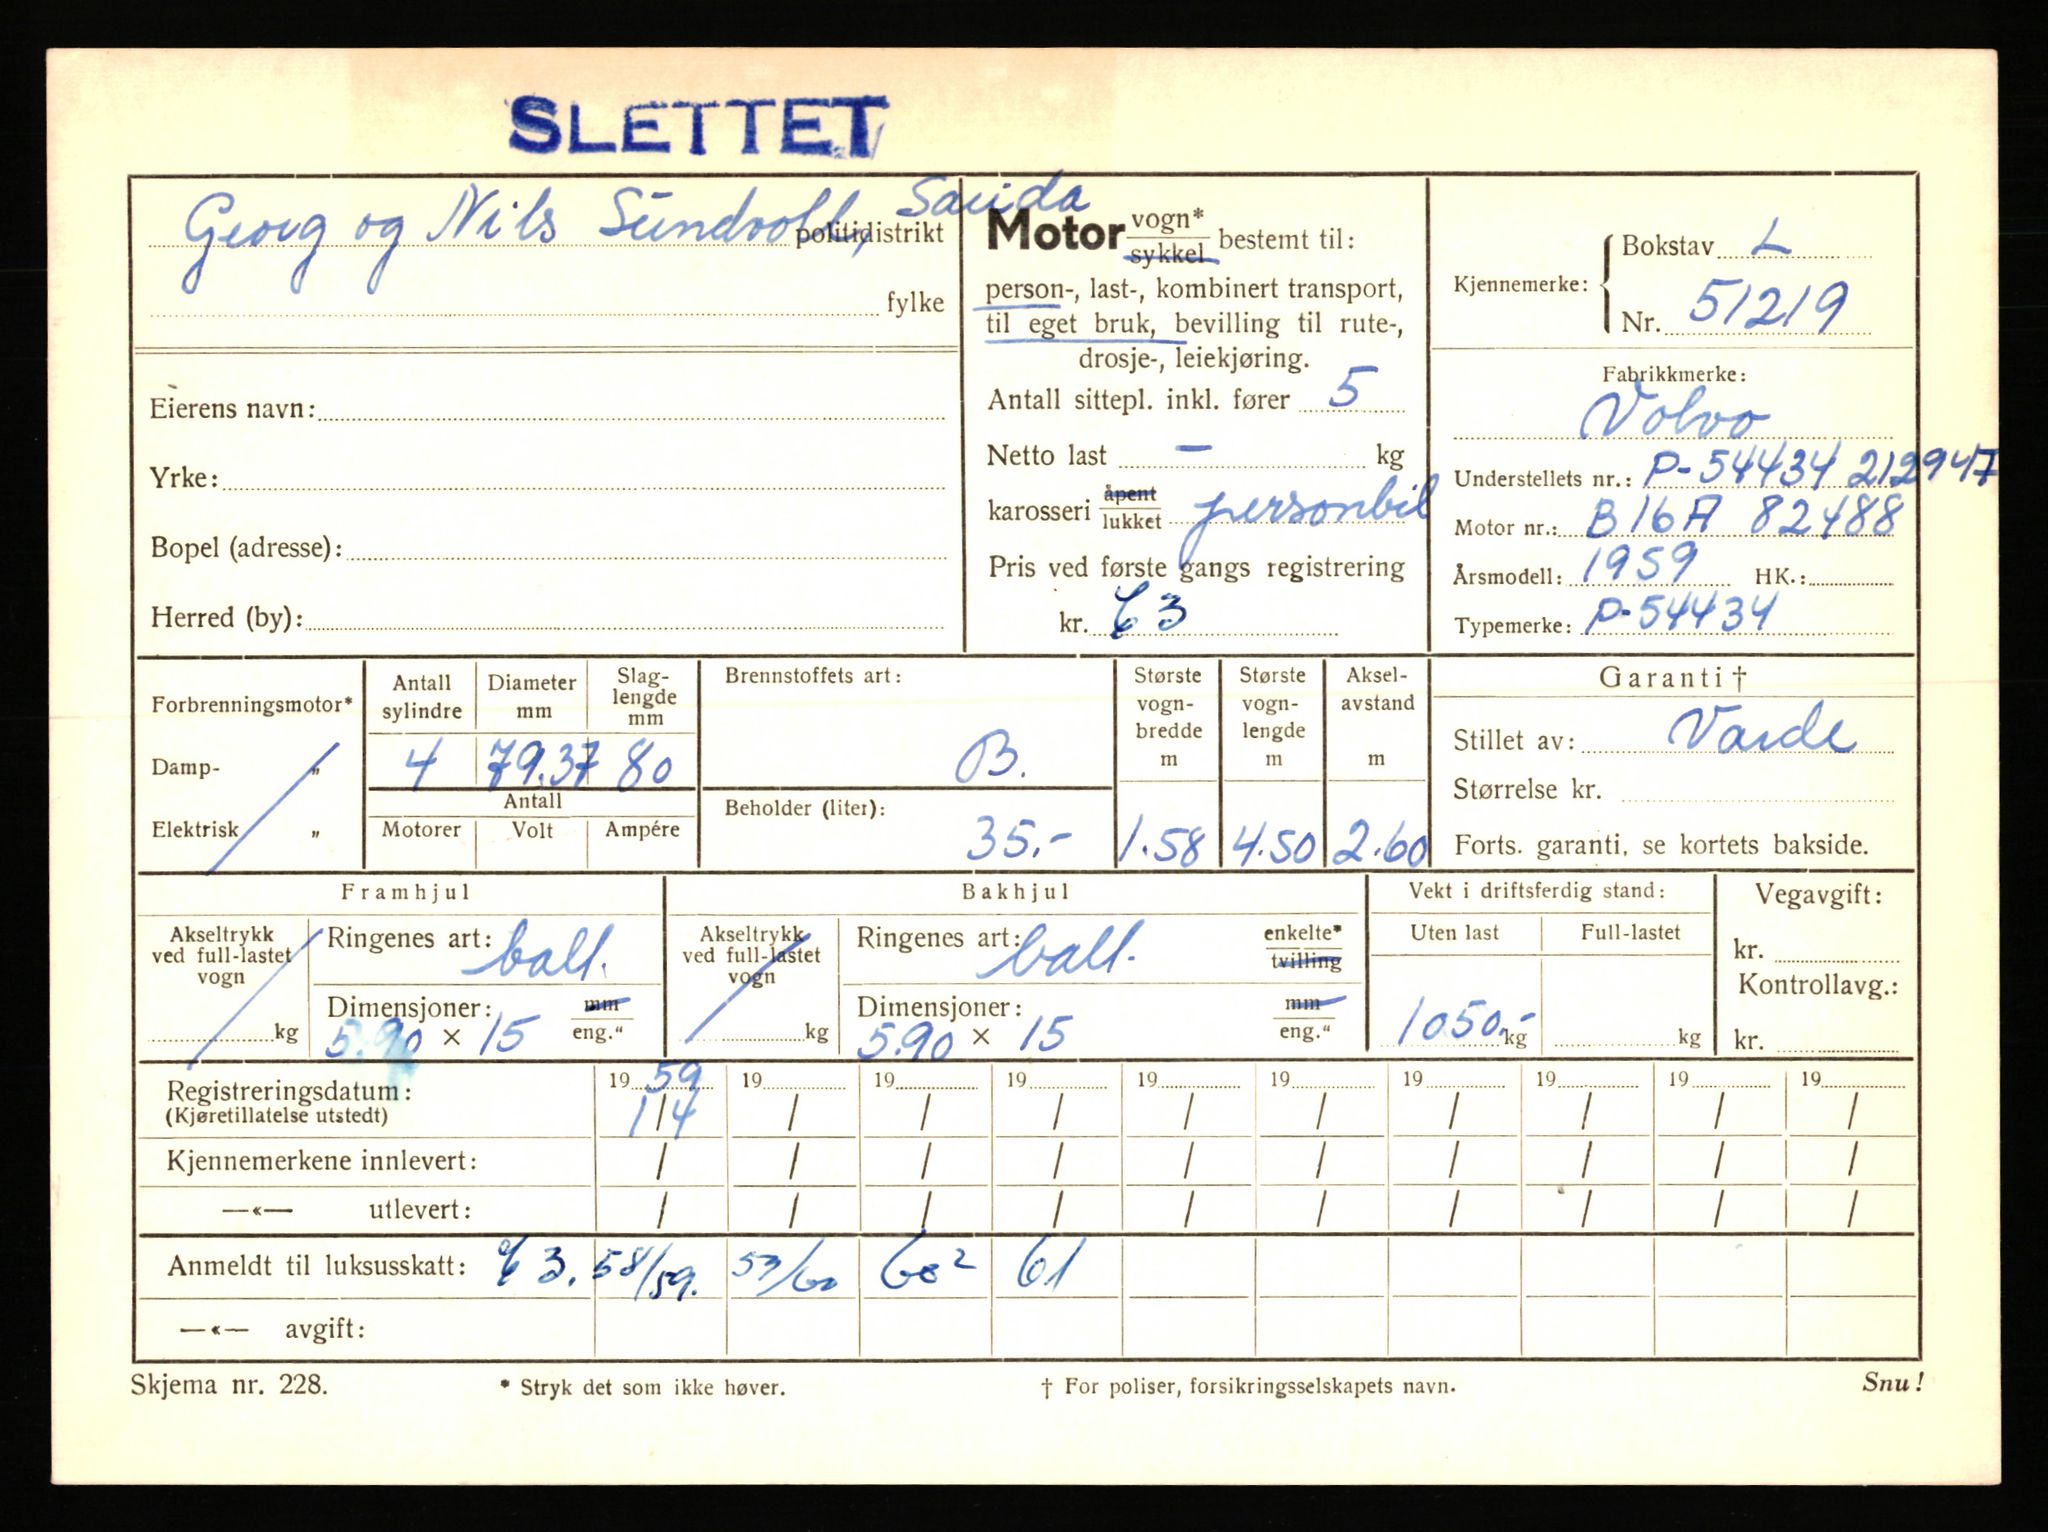 SLETTET
Georg og Nils Sundvoll, Sauda
politidistrikt
fylke
Eierens navn:
Yrke:
Bopel (adresse):
Herred (by):
Motor vogn* sykkel bestemt til:
person-, last-, kombinert transport,
til eget bruk, bevilling til rute-,
drosje-, leiekjøring.
Antall sittepl. inkl. fører 5
Netto last - kg
karosseri åpent lukket personbil
Pris ved første gangs registrering
kr. 3
Kjennemerke: Bokstav L
Nr. 51219
Fabrikkmerke:
Volvo
Understellets nr.: P-54434 212947
Motor nr.: B16A 82488
Årsmodell: 1959 HK.:
Typemerke: P-54434
Forbrenningsmotor*
Damp- „
Elektrisk „
Antall sylindre
Diameter mm
Slag-lengde mm
4 79.37 80
Antall
Motorer Volt Ampére
Brennstoffets art:
B.
Beholder (liter):
35.-
Største vogn-bredde m
1.58
Største vogn-lengde m
4.50
Aksel-avstand m
2.60
Garanti †
Stillet av: Varde
Størrelse kr.
Forts. garanti, se kortets bakside.
Framhjul
Akseltrykk ved full-lastet vogn
kg
Ringenes art: ball.
Dimensjoner: mm
5.90 × 15 eng."
Bakhjul
Akseltrykk ved full-lastet vogn
kg
Ringenes art: ball. enkelte* tvilling
Dimensjoner: mm
5.90 × 15 eng."
Vekt i driftsferdig stand:
Uten last Full-lastet
1050.- kg kg
Vegavgift:
kr.
Kontrollavg.:
kr.
Registreringsdatum: 19 59 19 19 19 19 19 19 19 19 19
(Kjøretillatelse utstedt) 1/4 / / / / / / / / /
Kjennemerkene innlevert: / / / / / / / / / /
—«— utlevert: / / / / / / / / / /
Anmeldt til luksusskatt: 3. 58/59. 53/60 60² 61
—«— avgift:
Skjema nr. 228. * Stryk det som ikke høver. † For poliser, forsikringsselskapets navn. Snu!